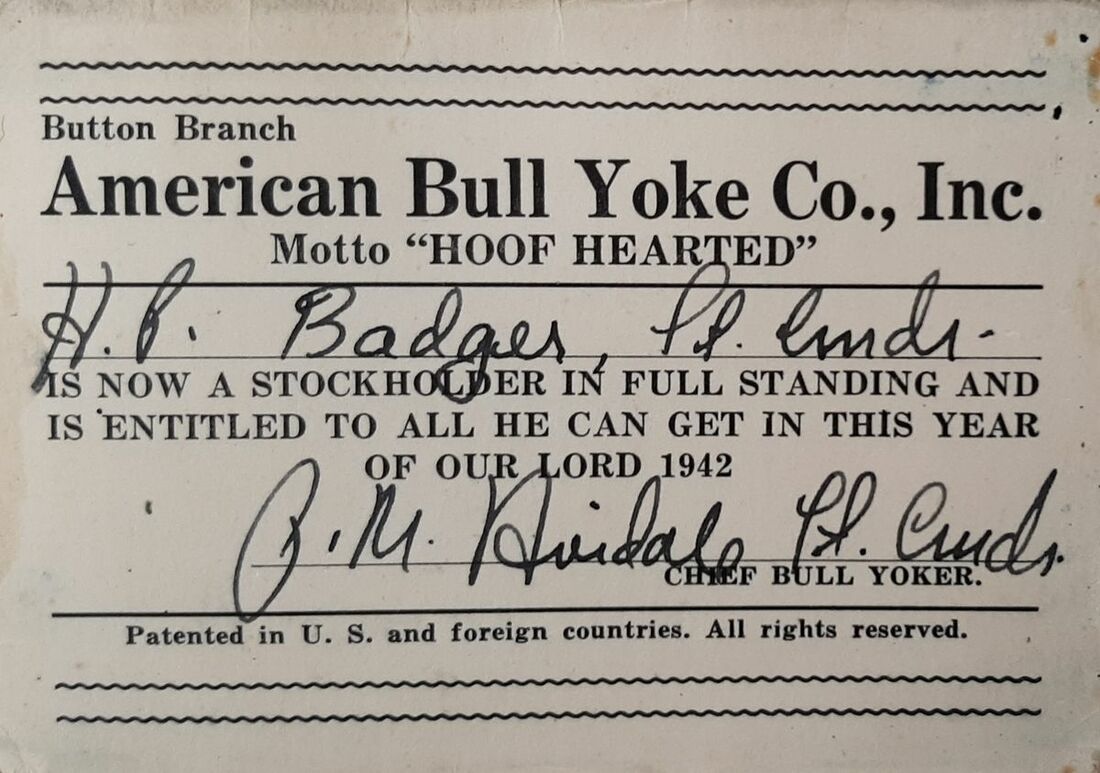 Button Branch
American Bull Yoke Co., Inc.
Motto “HOOF HEARTED”
H. P. Badger, Lt. Cmdr.
IS NOW A STOCKHOLDER IN FULL STANDING AND
IS ENTITLED TO ALL HE CAN GET IN THIS YEAR
OF OUR LORD 1942
M. Lt. Cmdr.
CHIEF BULL YOKER.
Patented in U. S. and foreign countries. All rights reserved.